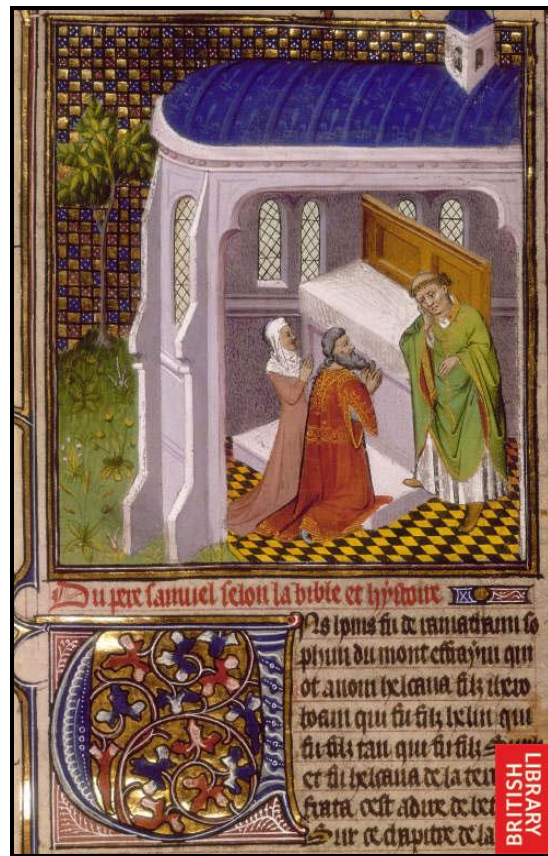 Du pere samuel selon la bible et hystoire
Uns homs fu de ramathaim so
phim du mont effraym qui
ot a nom helcana filz iero
boam qui fu filz heliu qui
fu filz tau qui fu filz
et fu helcana de la
frata cest adire de bet
Sur ce chapitre de la
BRITISH
LIBRARY